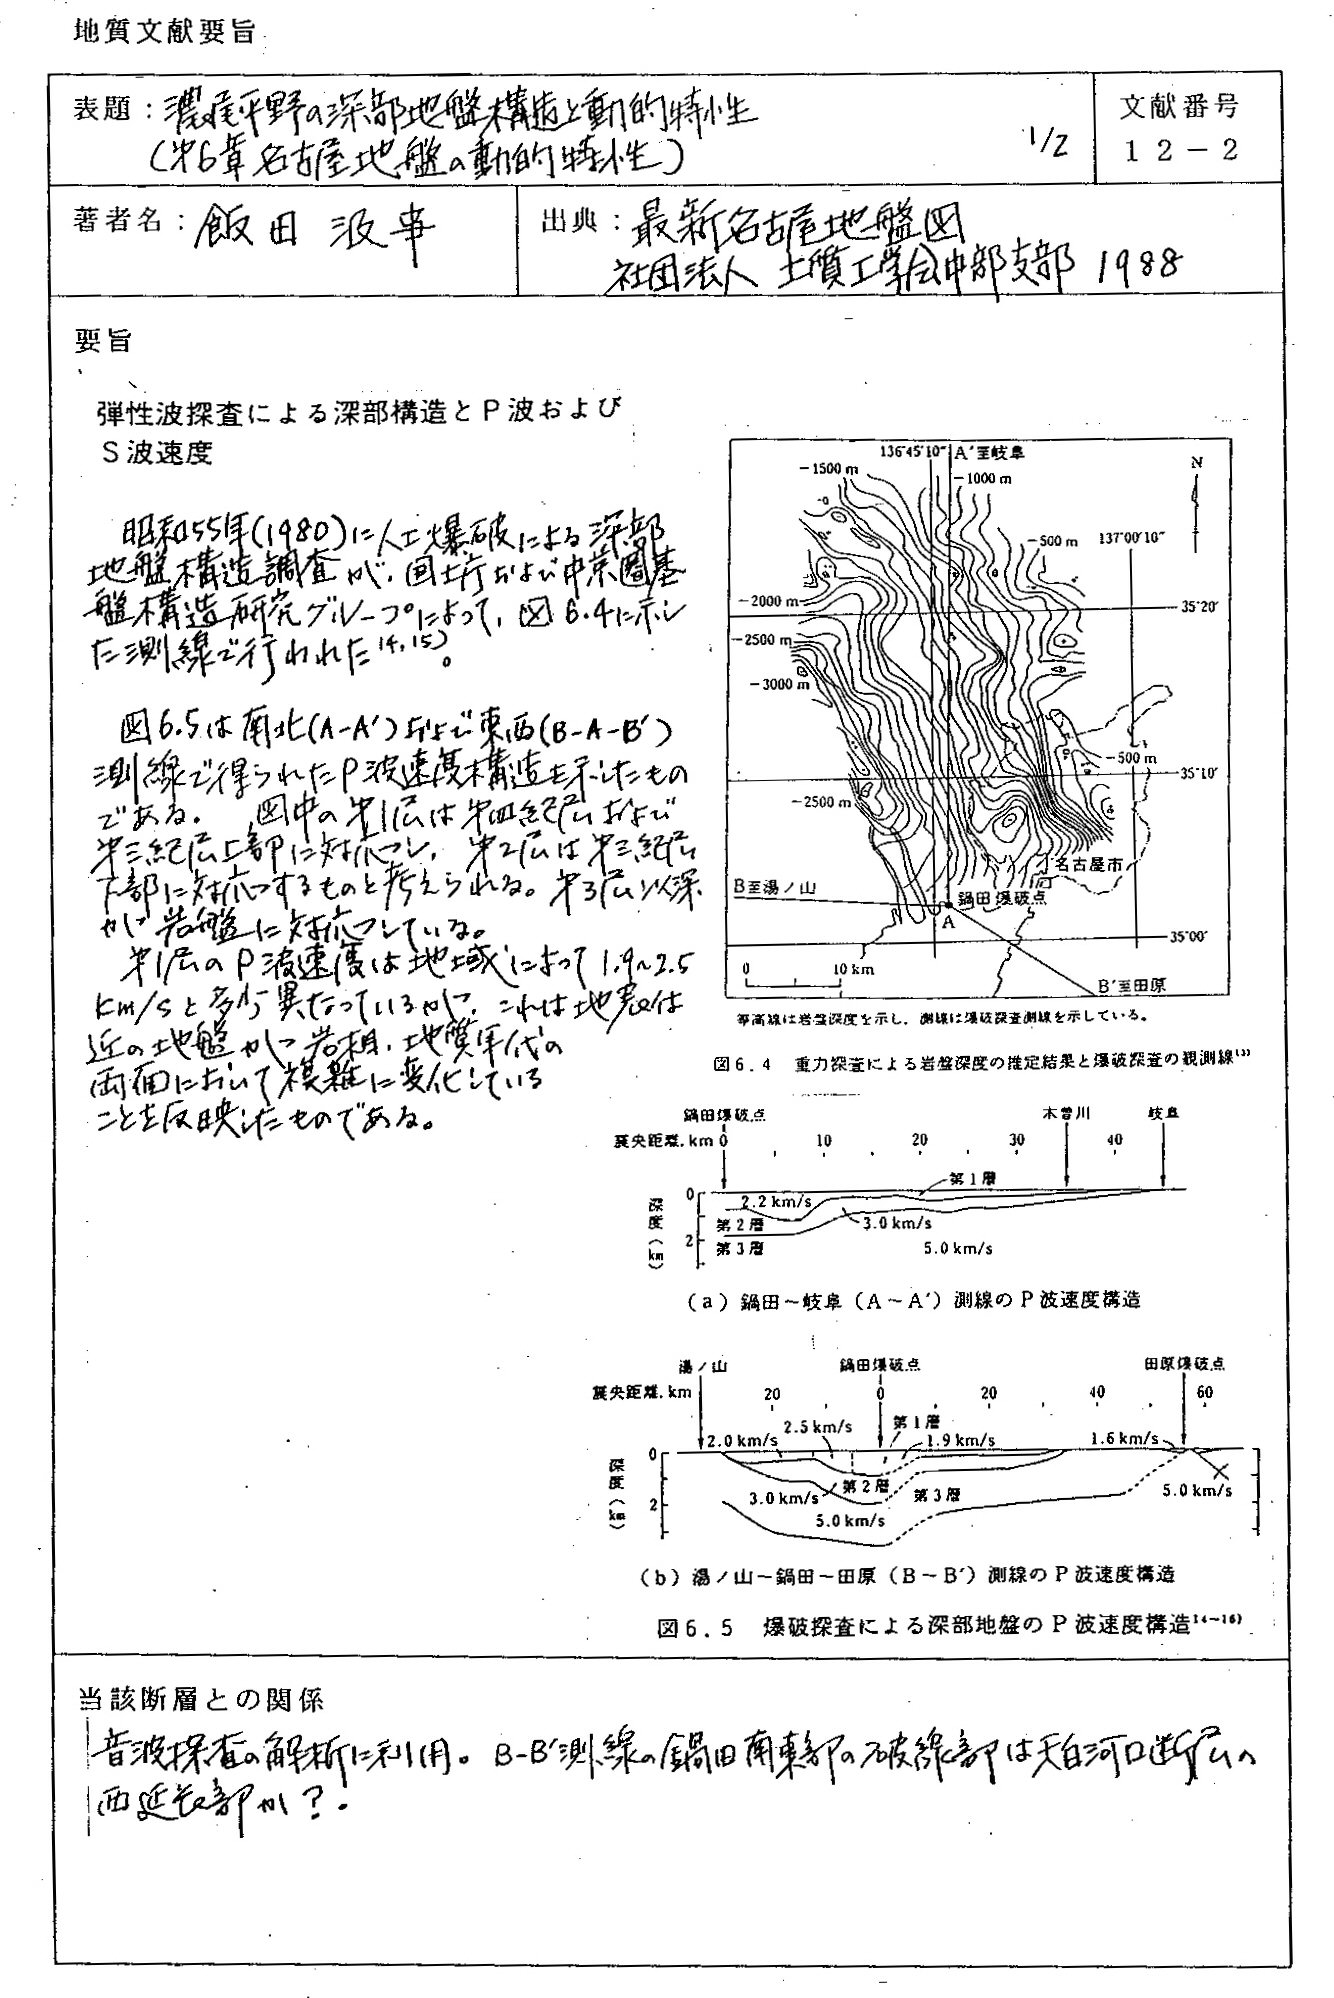 地質文献要旨
表題：濃尾平野の深部地盤構造と動的特性
(第6章名古屋地盤の動的特性)
1/2
文献番号
12-2
著者名：飯田汲事
出典：最新名古屋地盤図
社団法人 土質工学会中部支部 1988
要旨
弾性波探査による深部構造とP波および
S波速度
昭和55年(1980)に人工爆破による深部
地盤構造調査が、国土庁および中京圏基
盤構造研究グループによって、図6.4に示し
た測線で行われた14,15)。
図6.5は南北(A-A')および東西(B-A-B')
測線で得られたP波速度構造を示したもの
である。図中の第1層は第四紀層および
第三紀層上部に対応し、第2層は第三紀層
下部に対応するものと考えられる。第3層以深
が岩盤に対応している。
第1層のP波速度は地域によって1.9~2.5
km/sと多少異なっているが、これは地表付
近の地盤が岩相、地質年代の
両面において複雑に変化している
ことを反映したものである。
136°45′10″ A′至岐阜
-1500 m
-1000 m
N
-500 m
137°00′10″
-2000 m
35°20′
-2500 m
-3000 m
-500 m
35°10′
-2500 m
名古屋市
B至湯ノ山
鍋田爆破点
A
35°00′
0 10 km
B′至田原
等高線は岩盤深度を示し，測線は爆破探査測線を示している。
図6.4 重力探査による岩盤深度の推定結果と爆破探査の観測線13)
鍋田爆破点 木曽川 岐阜
震央距離,km 0 10 20 30 40
第1層
深度(km)
0
2
2.2 km/s
第2層
3.0 km/s
第3層
5.0 km/s
(a) 鍋田～岐阜（A～A′）測線のP波速度構造
湯ノ山 鍋田爆破点 田原爆破点
震央距離,km 20 0 20 40 60
2.5 km/s
第1層
2.0 km/s
1.9 km/s
1.6 km/s
深度(km)
0
2
3.0 km/s
第2層
第3層
5.0 km/s
5.0 km/s
(b) 湯ノ山～鍋田～田原（B～B′）測線のP波速度構造
図6.5 爆破探査による深部地盤のP波速度構造14～16)
当該断層との関係
音波探査の解析に利用。B-B'測線の鍋田南東部の破線部は天白河口断層の
西延長部か？.